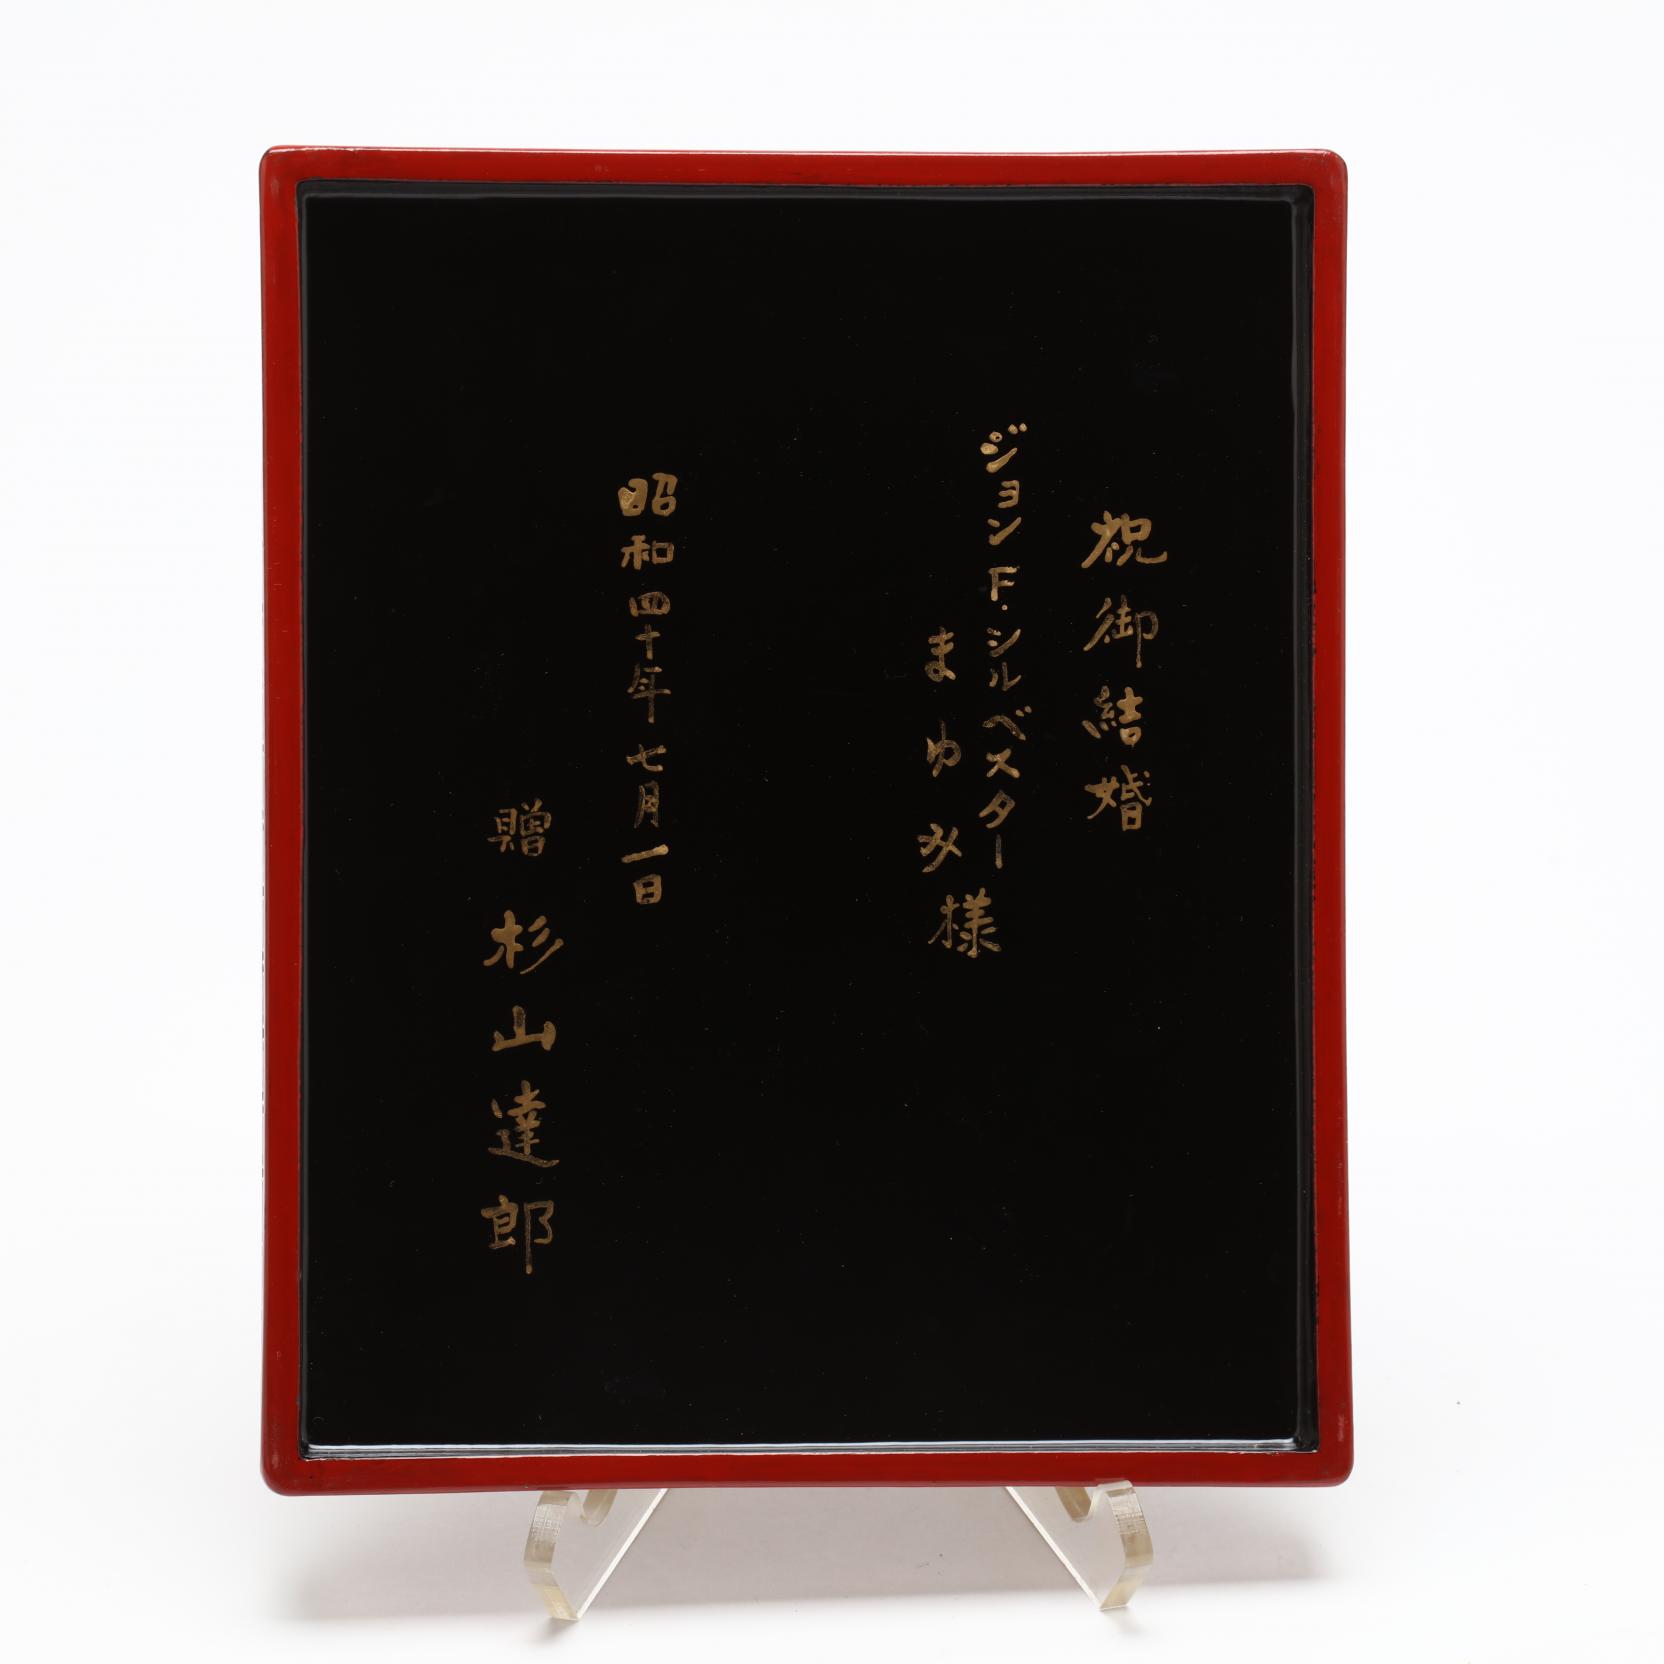 祝御結婚
ジョンF.シルベスター
まゆみ様
昭和四十年七月一日
贈 杉山達郎